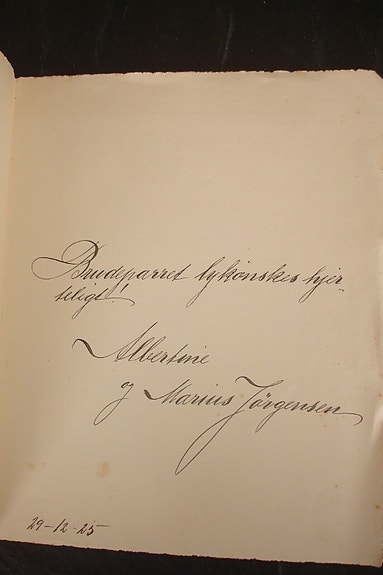 Brudeparret lykönskes hjer-
teligt!
Albertine
og Marius Jörgensen
29-12-25